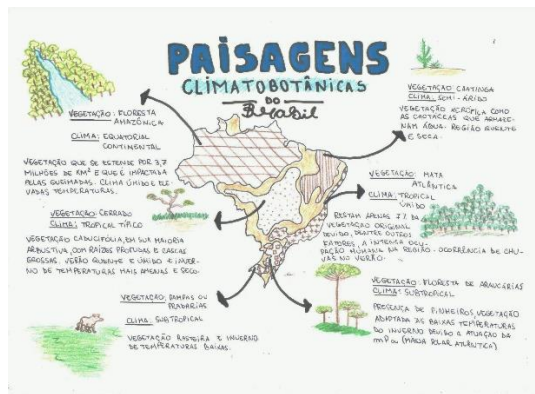 PAISAGENS
CLIMATOBOTÂNICAS
DO
Brasil
VEGETAÇÃO: FLORESTA
AMAZÔNICA
CLIMA: EQUATORIAL
CONTINENTAL
VEGETAÇÃO QUE SE ESTENDE POR 3,7
MILHÕES DE KM² E QUE É IMPACTADA
PELAS QUEIMADAS. CLIMA ÚMIDO E ELE
VADAS TEMPERATURAS.
VEGETAÇÃO: CERRADO
CLIMA: TROPICAL TÍPICO
VEGETAÇÃO CADUCIFÓLIA, EM SUA MAIORIA
ARBUSTIVA, COM RAÍZES PROFUNDAS E CASCAS
GROSSAS. VERÃO QUENTE E ÚMIDO E INVER-
NO DE TEMPERATURAS MAIS AMENAS E SECO.
VEGETAÇÃO: PAMPAS OU
PRADARIAS
CLIMA: SUBTROPICAL
VEGETAÇÃO RASTEIRA E INVERNO
DE TEMPERATURAS BAIXAS.
VEGETAÇÃO: CAATINGA
CLIMA: SEMI-ÁRIDO
VEGETAÇÃO XERÓFILA COMO
AS CACTÁCEAS QUE ARMAZE-
NAM ÁGUA. REGIÃO QUENTE
E SECA.
VEGETAÇÃO: MATA
ATLÂNTICA
CLIMA: TROPICAL
ÚMIDO
RESTAM APENAS 7% DA
VEGETAÇÃO ORIGINAL
DEVIDO, DENTRE OUTROS
FATORES, A INTENSA OCU-
PAÇÃO HUMANA NA REGIÃO. OCORRÊNCIA DE CHU-
VAS NO VERÃO.
VEGETAÇÃO: FLORESTA DE ARAUCÁRIAS
CLIMA: SUBTROPICAL
PRESENÇA DE PINHEIROS, VEGETAÇÃO
ADAPTADA ÀS BAIXAS TEMPERATURAS
DO INVERNO DEVIDO A ATUAÇÃO DA
mPa (MASSA POLAR ATLÂNTICA)